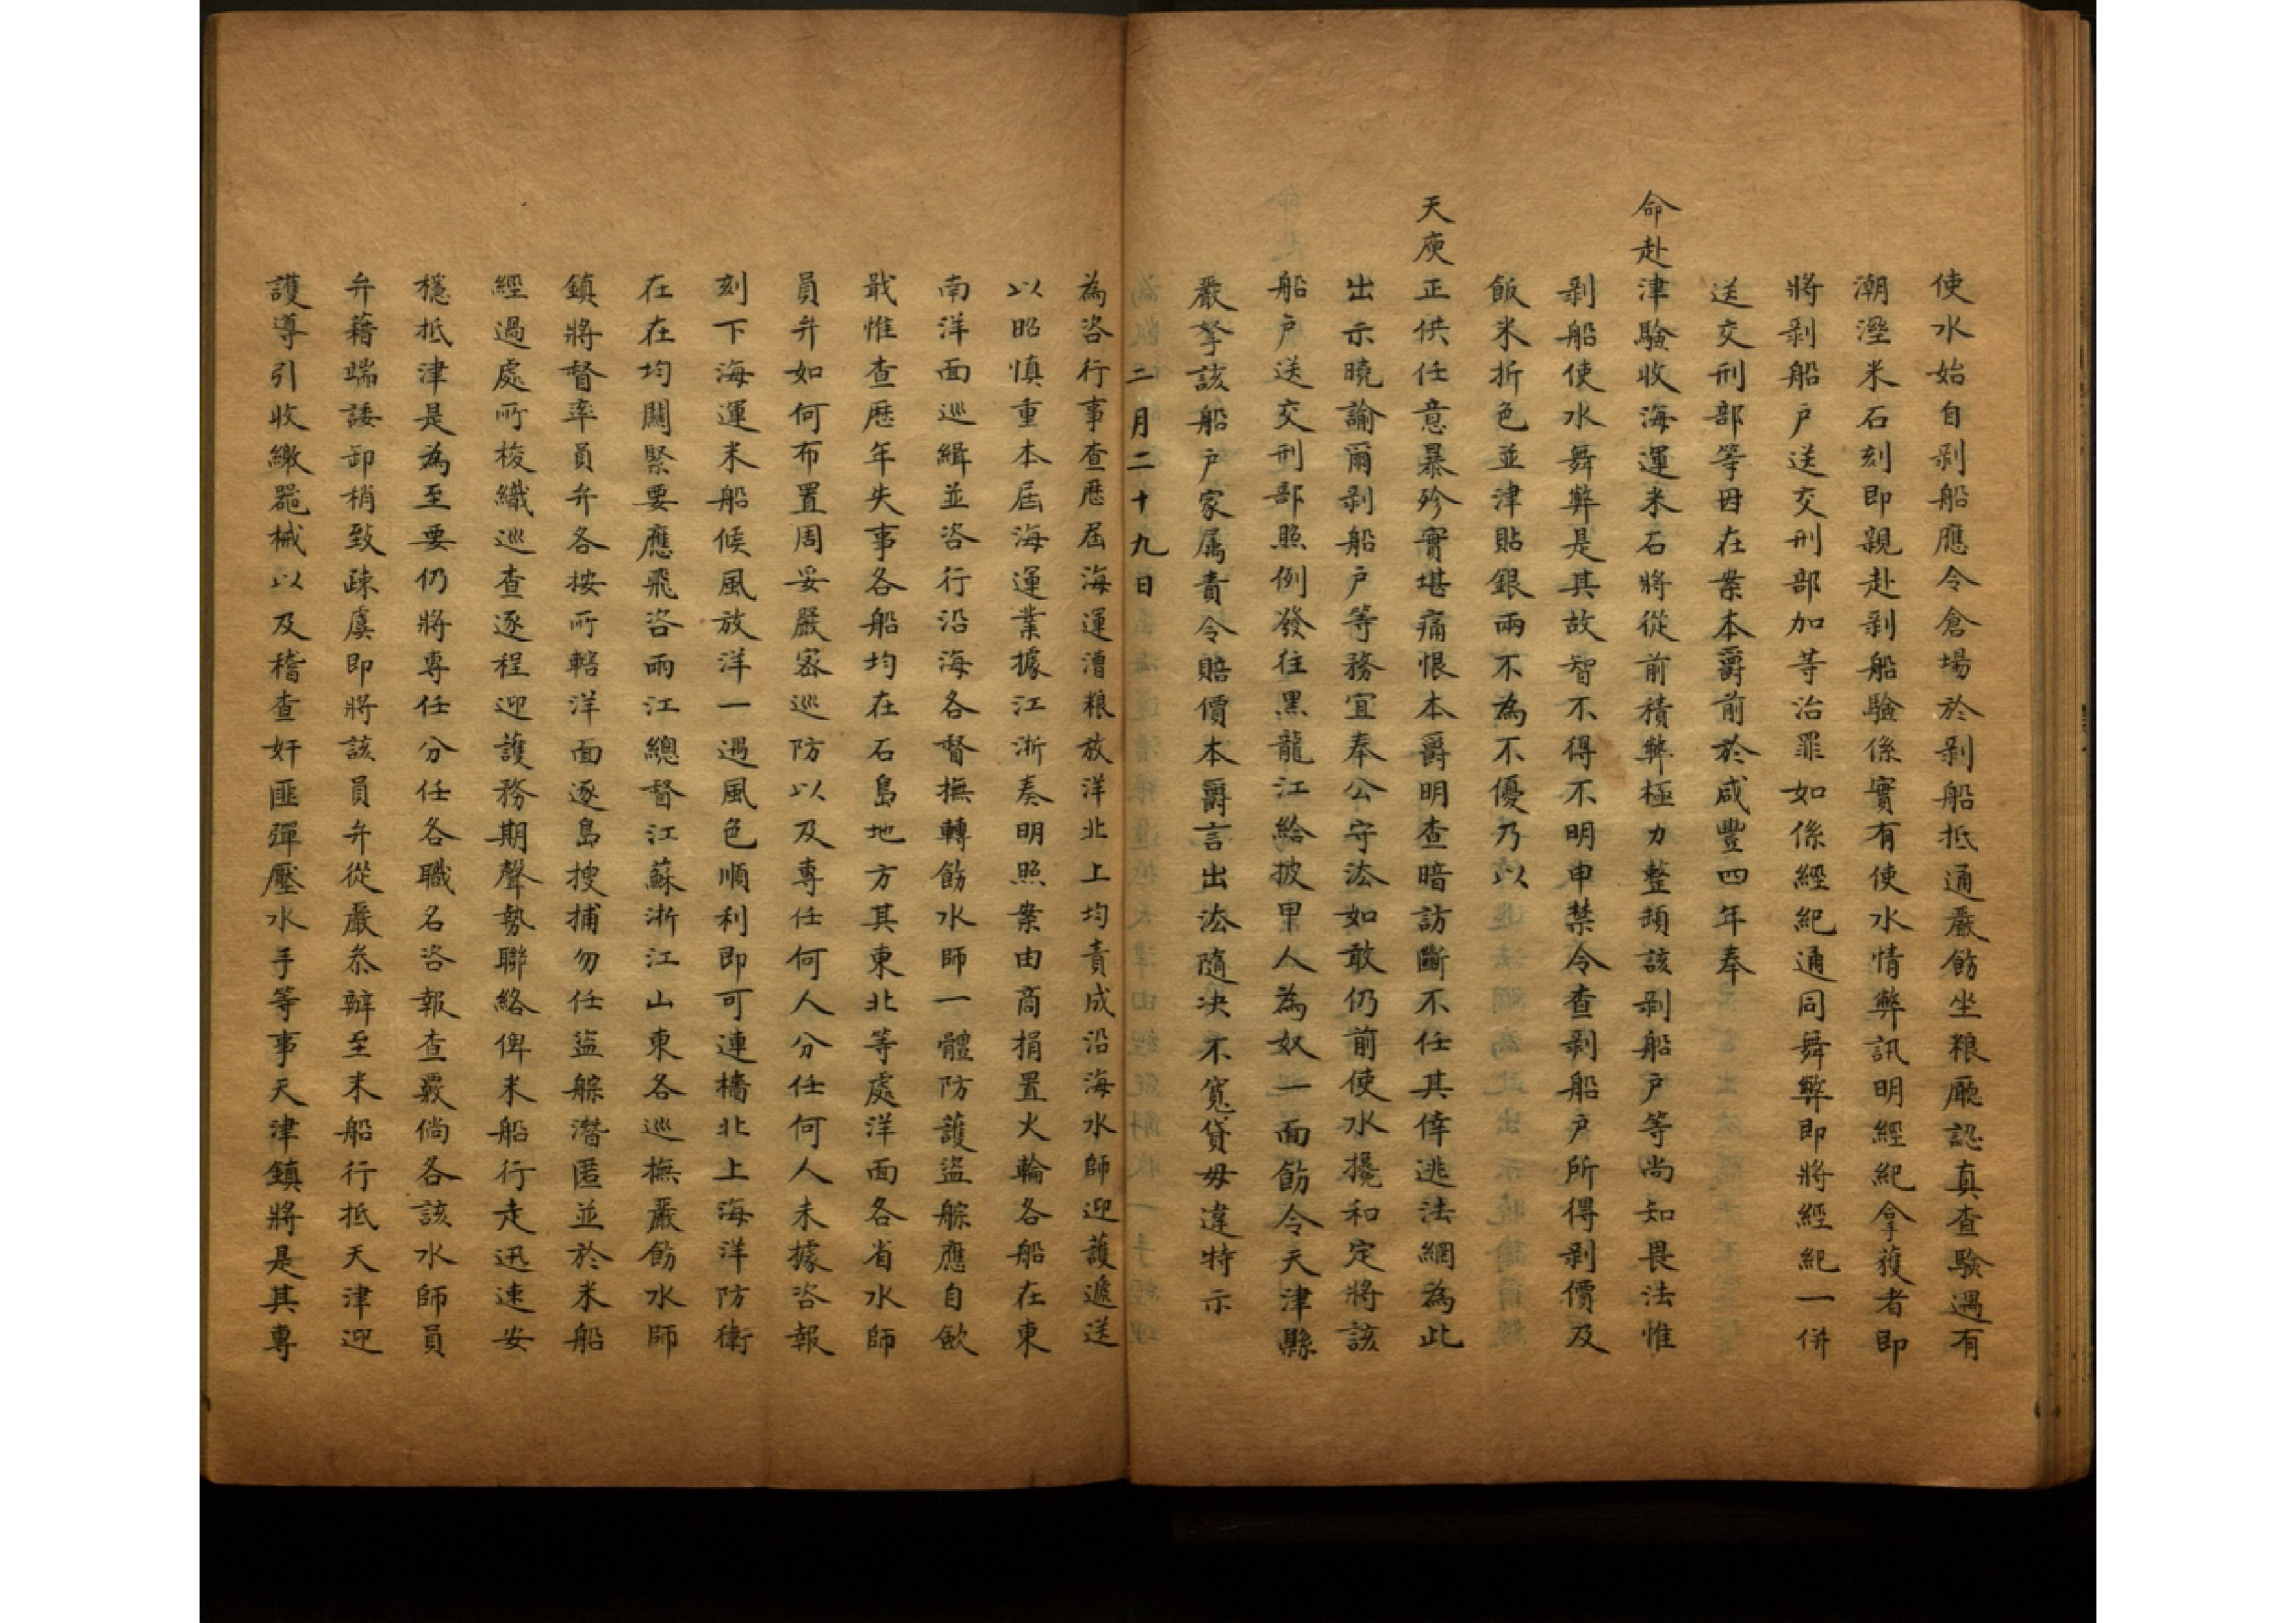 使水始自剥船應令倉場於剥船抵通嚴飭坐粮廰認真查驗遇有
潮溼米石刻即親赴剥船驗係實有使水情弊訊明經紀拿獲者即
將剥船户送交刑部加等治罪如係經紀通同舞弊即將經紀一併
送交刑部等因在案本爵前於咸豐四年奉
命赴津驗收海運米石將從前積弊極力整頓該剥船户等尚知畏法惟
剥船使水舞弊是其故智不得不明申禁令查剥船户所得剥價及
飯米折色並津貼銀兩不為不優乃以
天庾正供任意暴殄實堪痛恨本爵明查暗訪斷不任其倖逃法網為此
出示曉諭爾剥船户等務宜奉公守法如敢仍前使水攙和定將該
船户送交刑部照例發往黑龍江給披甲人為奴一面飭令天津縣
嚴拏該船户家属責令賠價本爵言出法隨决不寬貸毋違特示
二月二十九日
為咨行事查歷屆海運漕粮放洋北上均責成沿海水師迎護遞送
以昭慎重本屆海運業據江浙奏明照案由商捐置火輪各船在東
南洋面巡緝並咨行沿海各督撫轉飭水師一體防護盜艍應自歛
戢惟查歷年失事各船均在石島地方其東北等處洋面各省水師
員弁如何布置周妥嚴密巡防以及專任何人分任何人未據咨報
刻下海運米船候風放洋一遇風色順利即可連檣北上海洋防衛
在在均關緊要應飛咨兩江總督江蘇浙江山東各巡撫嚴飭水師
鎮將督率員弁各按所轄洋面逐島搜捕勿任盜艍潛匿並於米船
經過處所梭織巡查逐程迎護務期聲勢聯絡俾米船行走迅速安
穩抵津是為至要仍將專任分任各職名咨報查覈倘各該水師員
弁藉端諉卸稍致疎虞即將該員弁從嚴叅辦至米船行抵天津迎
護導引收繳器械以及稽查奸匪彈壓水手等事天津鎮將是其專